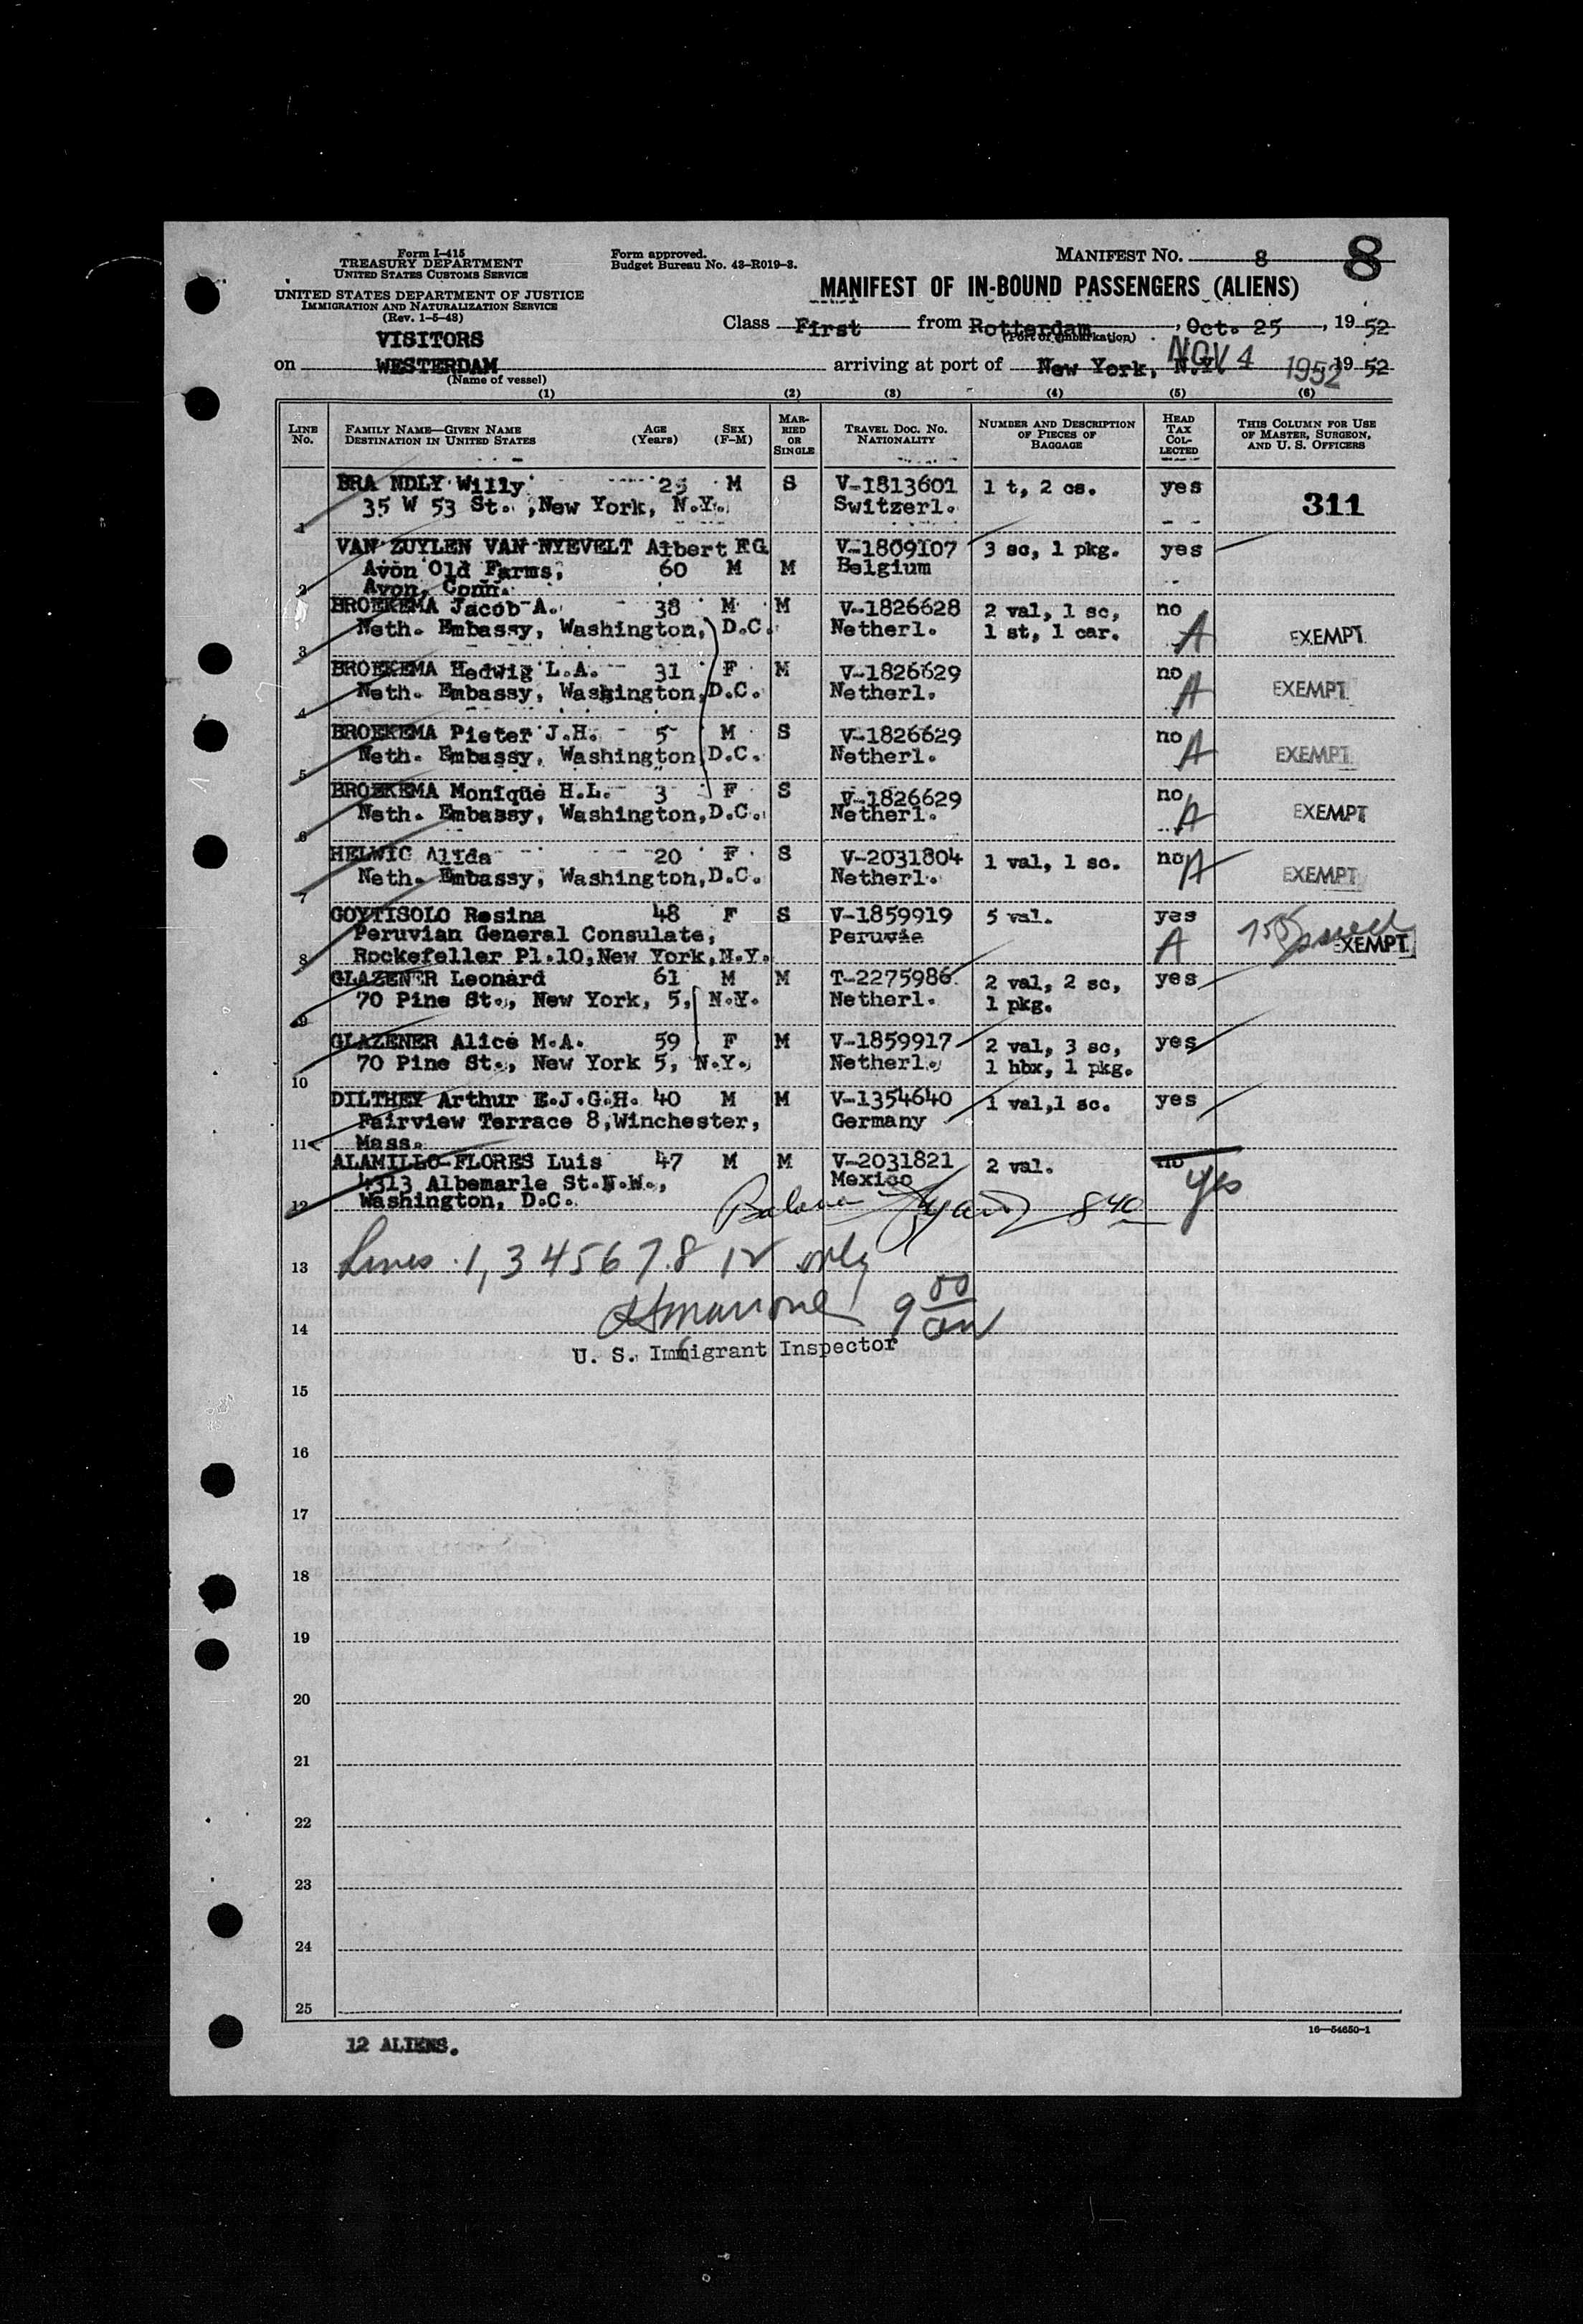 Form I-415
TREASURY DEPARTMENT
UNITED STATES CUSTOMS SERVICE
UNITED STATES DEPARTMENT OF JUSTICE
IMMIGRATION AND NATURALIZATION SERVICE
(Rev. 1-5-48)
Form approved.
Budget Bureau No. 43-R019-3.
MANIFEST NO. 8
8
MANIFEST OF IN-BOUND PASSENGERS (ALIENS)
VISITORS
Class First from Rotterdam, Oct. 25, 1952
(Port of embarkation)
on WESTERDAM arriving at port of New York, N.Y. NOV 4 1952 1952
(Name of vessel)
(1) (2) (3) (4) (5) (6)
LINE No. FAMILY NAME—GIVEN NAME DESTINATION IN UNITED STATES AGE (Years) SEX (F-M) MARRIED OR SINGLE TRAVEL DOC. NO. NATIONALITY NUMBER AND DESCRIPTION OF PIECES OF BAGGAGE HEAD TAX COLLECTED THIS COLUMN FOR USE OF MASTER, SURGEON, AND U. S. OFFICERS
BRA NDLY Willy 25 M S V-1813601 1 t, 2 cs. yes 311
1 35 W 53 St. ,New York, N.Y. Switzerl.
VAN ZUYLEN VAN NYEVELT Albert FG V-1809107 3 sc, 1 pkg. yes
Avon Old Farms, 60 M M Belgium
2 Avon, Conn.
BROEKEMA Jacob A. 38 M M V-1826628 2 val, 1 sc, no
3 Neth. Embassy, Washington, D.C. Netherl. 1 st, 1 car. A EXEMPT
BROEKEMA Hedwig L.A. 31 F M V-1826629 no
4 Neth. Embassy, Washington, D.C. Netherl. A EXEMPT
BROEKEMA Pieter J.H. 5 M S V-1826629 no
5 Neth. Embassy, Washington D.C. Netherl. A EXEMPT
BROEKEMA Monique H.L. 3 F S V-1826629 no
6 Neth. Embassy, Washington,D.C. Netherl. A EXEMPT
HELWIG Alida 20 F S V-2031804 1 val, 1 sc. no A
7 Neth. Embassy, Washington,D.C. Netherl. EXEMPT
GOYTISOLO Rosina 48 F S V-1859919 5 val. yes
Peruvian General Consulate, Peruvie A EXEMPT
8 Rockefeller Pl.10,New York,N.Y.
GLAZENER Leonard 61 M M T-2275986 2 val, 2 sc, yes
9 70 Pine St., New York, 5, N.Y. Netherl. 1 pkg.
GLAZENER Alice M.A. 59 F M V-1859917 2 val, 3 sc, yes
10 70 Pine St., New York 5, N.Y. Netherl. 1 hbx, 1 pkg.
DILTHEY Arthur E.J.G.H. 40 M M V-1354640 1 val,1 sc. yes
Fairview Terrace 8,Winchester, Germany
11 Mass.
ALAMILLO-FLORES Luis 47 M M V-2031821 2 val. no yes
4313 Albemarle St.N.W., Mexico
12 Washington, D.C.
840
13 Lines 1, 3 4 5 6 7 8 12 only
14 9 00 am
U. S. Immigrant Inspector
15
16
17
18
19
20
21
22
23
24
25
16—54650-1
12 ALIENS.